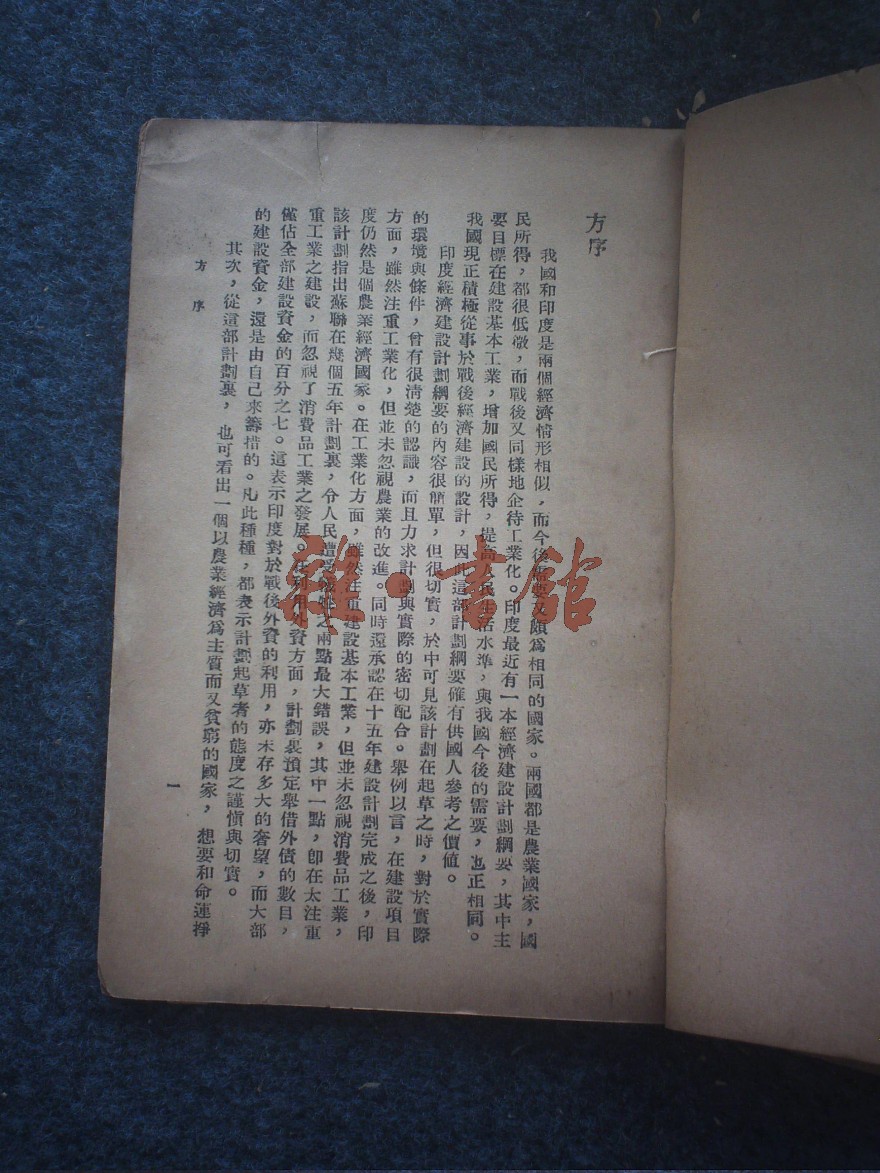 方序
我國和印度是兩個經濟情形相似，而今後需要又頗爲相同的國家。兩國都是農業國家，國
民所得，都很低微，而戰後又同樣地企待工業化。印度最近有一本經濟建設計劃綱要，其中主
要目標在建設基本工業，增加國民所得，提高人民生活水準，與我國今後的需要，也正相同。
我國現正積極從事於戰後經濟建設的設計，因此這部計劃綱要確有供國人參考之價値。
印度經濟建設計劃綱要的內容很簡單，但很切實，於中可見該計劃在起草之時，對於實際
的環境與條件，曾有很淸楚的認識，而且力求計劃與實際的密切配合。舉例以言，在建設項目
方面，雖然注重工業化，但並未忽視農業的改進。同時還承認在十五年建設計劃完成之後，印
度仍然是個農業經濟國家。在工業化方面，雖然注重建設基本工業，但並未忽視消費品工業，
該計劃指出蘇聯在幾個五年計劃裏，令人民遭受之兩點最大錯誤，其中一點，卽在太注重
重工業之建設，而忽視了消費品工業之發展。在利用外資方面，計劃裏預定舉借外債的數目，
僅佔全部建設資金的百分之七。這表示印度對於戰後外資的利用，亦未存多大的奢望，而大部
的建設資金，還是由自己來籌措的。凡此種種，都表示計劃起草者的態度之謹愼與切實。
其次，從這部計劃裏，也可看出一個以農業經濟爲主質而又貧窮的國家，想要和命運掙
方序
一
雜·書館